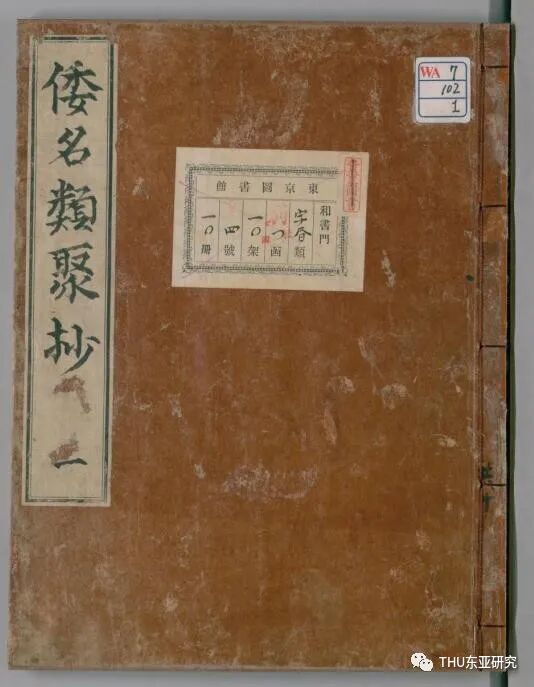 倭名類聚抄
一
東京圖書館
和書門
字書類
函
一〇架
四號
一〇冊
WA 7
102
1
THU东亚研究